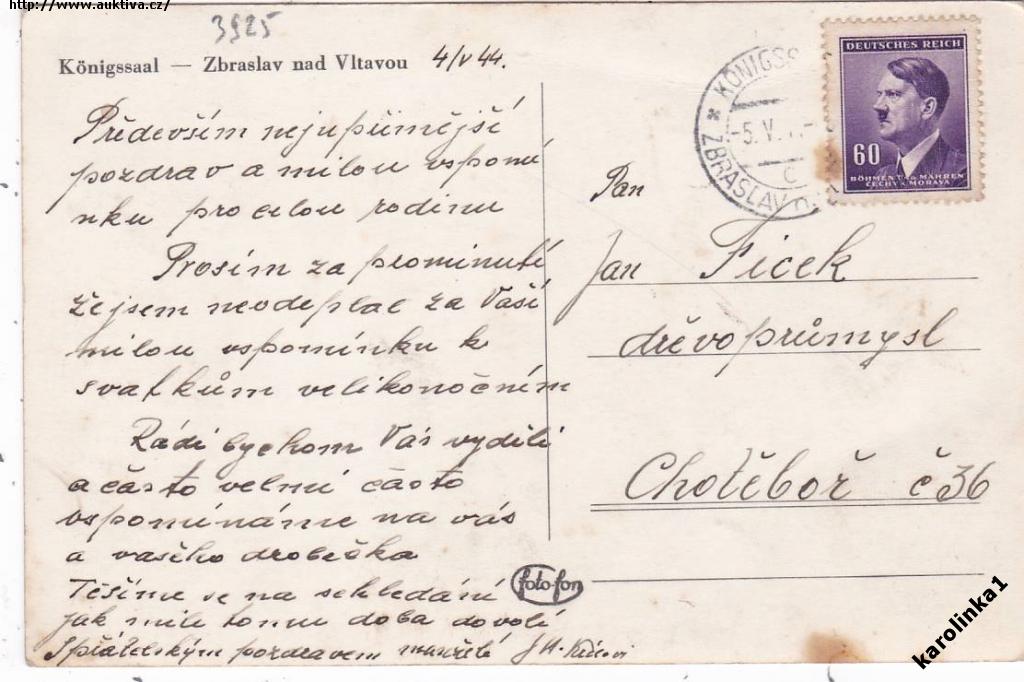 http://www.auktiva.cz/
3925
Königssaal — Zbraslav nad Vltavou 4/V 44.
Především nejupřímnější
pozdrav a milou vspomí
nku pro celou rodinu
Prosím za prominutí
že jsem neodeplal za Vaší
milou vspomínku k
svatkům velikonočním
Rádi bychom Vás vyděli
a často velmi často
vspomínáme na vás
a vašeho drobečka
Těšíme se na schledání
jak mile tomu doba dovolí
S přátelským pozdravem
foto-fon
KÖNIGSS
-5.V.
C
ZBRASLAV n.
DEUTSCHES REICH
60
BÖHMEN U. MÄHREN
ČECHY A MORAVA
Pan
Jan Ficek
dřevoprůmysl
Chotěboř č 36
karolinka1